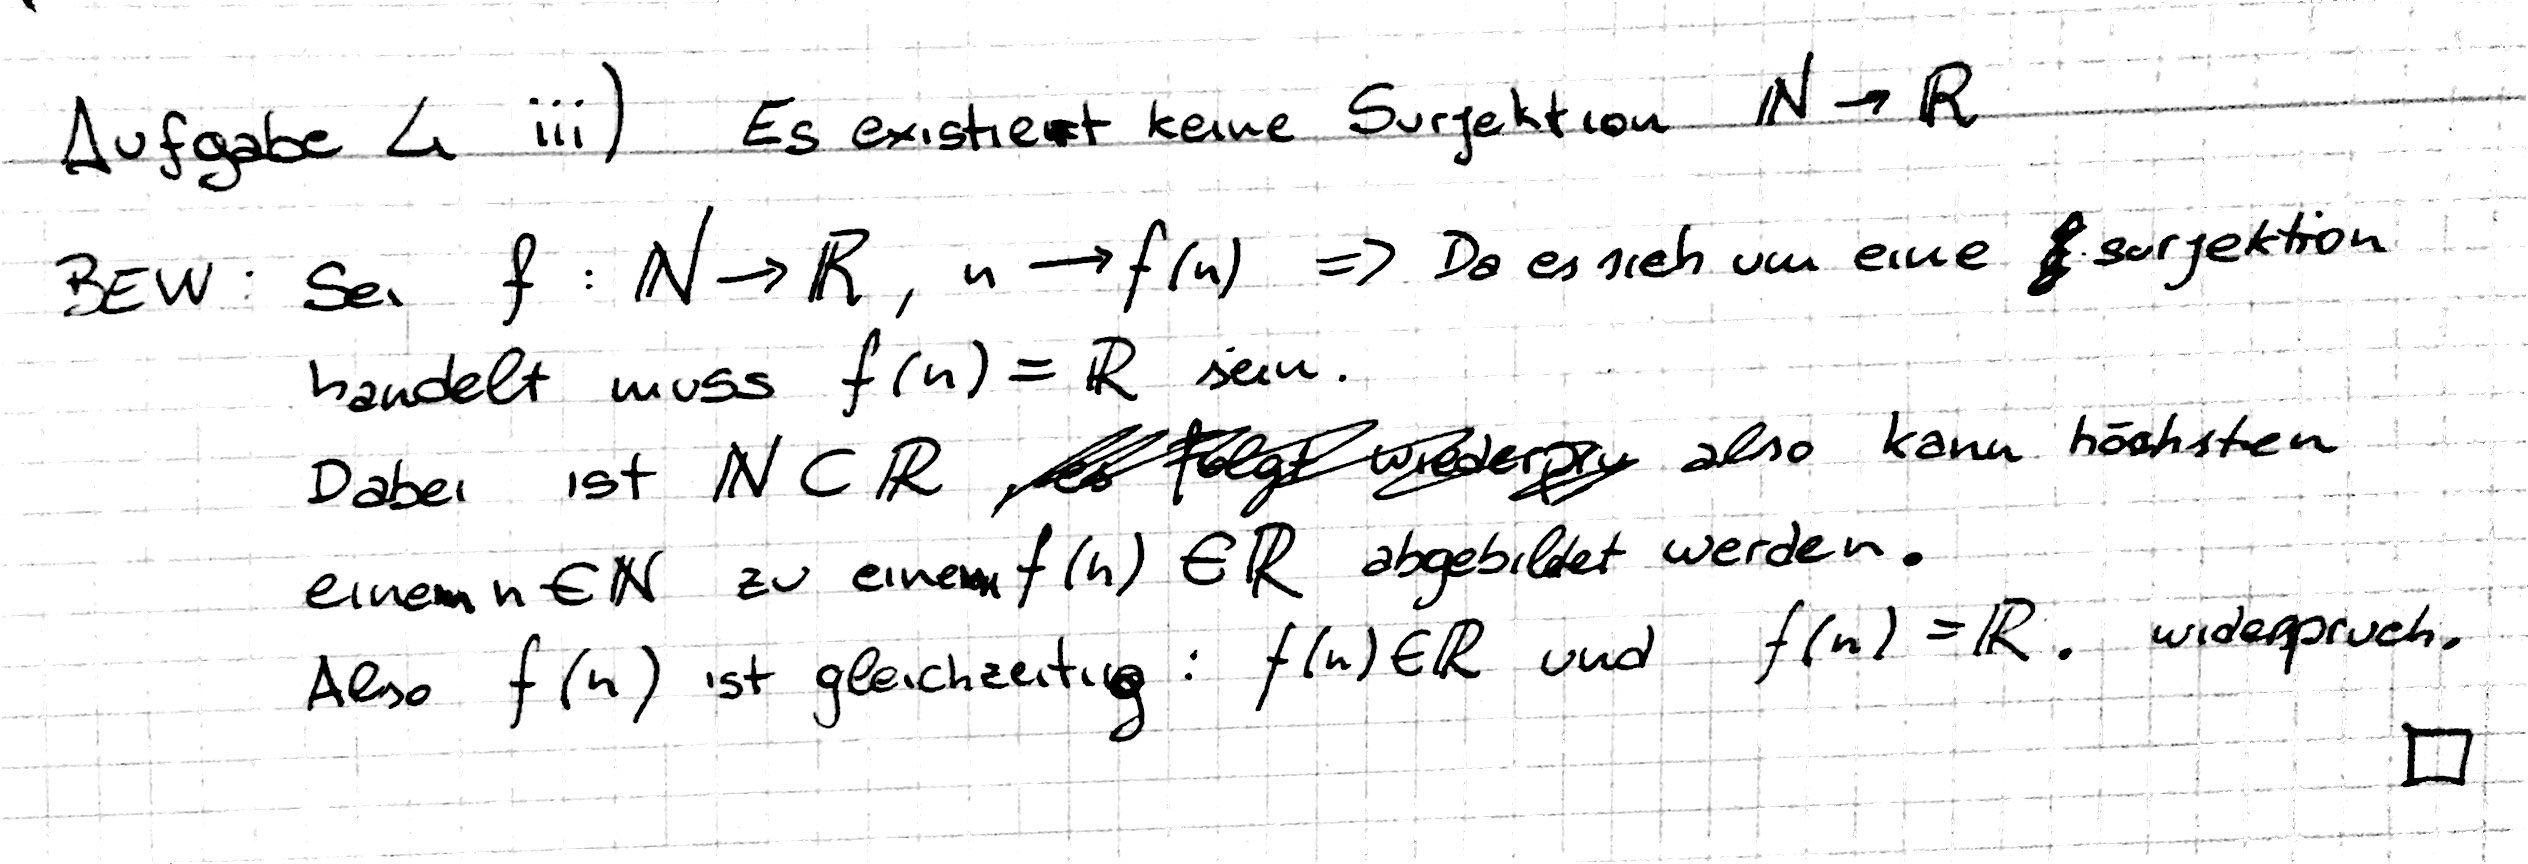 Aufgabe 4 iii) Es existiert keine Surjektion ℕ → ℝ
BEW: Sei f : ℕ → ℝ, n → f(n) => Da es sich um eine surjektion
handelt muss f(n) = ℝ sein.
Dabei ist ℕ ⊂ ℝ, es folgt wiederspru also kann höchsten
einem n ∈ ℕ zu einem f(n) ∈ ℝ abgebildet werden.
Also f(n) ist gleichzeitig: f(n) ∈ ℝ und f(n) = ℝ. widerspruch.
□